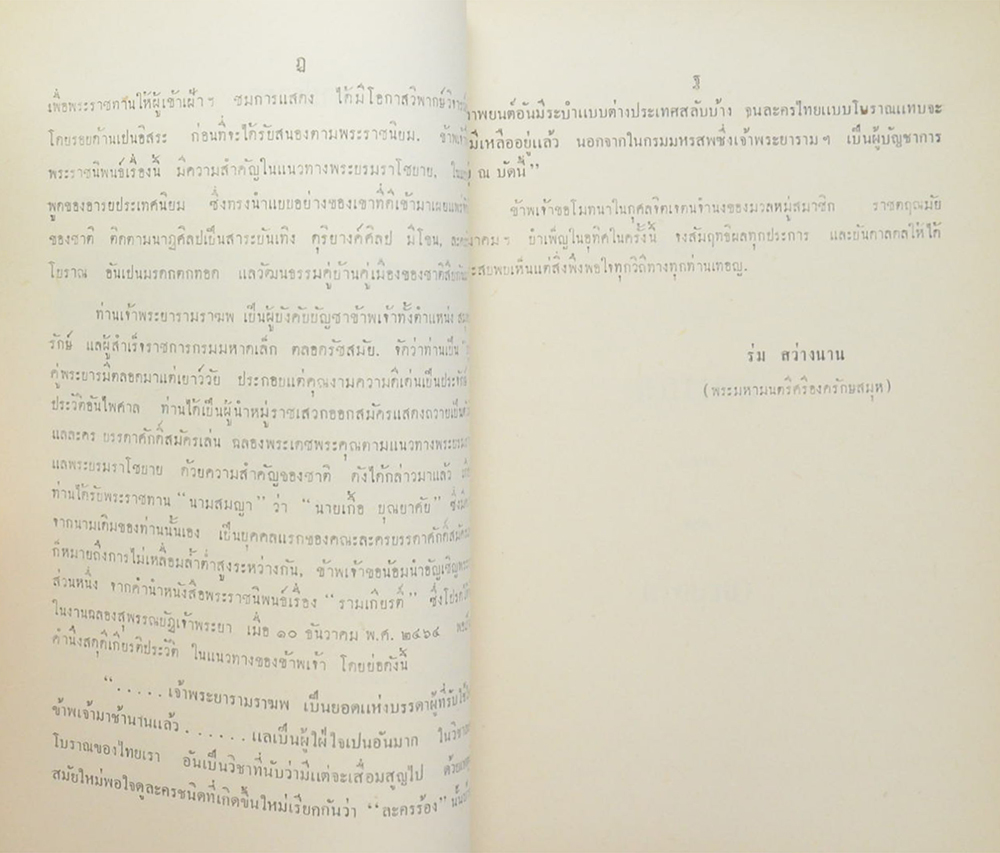 ฎ
เพื่อพระราชทานให้ผู้เข้าเฝ้าฯ ชมการแสดง ได้มีโอกาสวิพากษ์
โดยรอยด้านเปนอิสระ ก่อนที่จะได้รับสนองตามพระราชนิยม. ข้าพเจ้า
พระราชนิพนธ์เรื่องนี้ มีความสำคัญในแนวทางพระบรมราโชบาย,
พูดของอารยประเทศนิยม ซึ่งทรงนำแบบอย่างของเขาที่ดีเข้ามาเผยแพร่
ของชาติ ติดตามนาฏศิลปเป็นสาระบันเทิง ดุริยางค์ศิลป มีโขน,
โบราณ อันเปนมรดกตกทอด แลวัฒนธรรมคู่บ้านคู่เมืองของชาติสืบ
ท่านเจ้าพระยารามราฆพ เป็นผู้บังคับบัญชาข้าพเจ้าทั้งตำแหน่ง
รักษ์ แลผู้สำเร็จราชการกรมมหาดเล็ก ตลอดรัชสมัย. จัดว่าท่านเป็น
คู่พระบารมีตลอดมาแต่เยาว์วัย ประกอบแต่คุณงามความดีเด่นเป็น
ประวัติอันไพศาล ท่านได้เป็นผู้นำหมู่ราชเสวกออกสมัครแสดงถวาย
แลละคร บรรดาศักดิ์สมัครเล่น ฉลองพระเดชพระคุณตามแนวทาง
แลพระบรมราโชบาย ด้วยความสำคัญของชาติ ดังได้กล่าวมาแล้ว
ท่านได้รับพระราชทาน “นามสมญา” ว่า “นายเกื้อ บุณยาคัย”
จากนามเดิมของท่านนั้นเอง เป็นบุคคลแรกของคณะละครบรรดาศักดิ์
ก็หมายถึงการไม่เหลื่อมล้ำต่ำสูงระหว่างกัน, ข้าพเจ้าขอน้อมนำอัญเชิญ
ส่วนหนึ่ง จากคำนำหนังสือพระราชนิพนธ์เรื่อง “รามเกียรติ์”
ในงานฉลองสุพรรณบัฏเจ้าพระยา เมื่อ ๑๐ ธันวาคม พ.ศ. ๒๔๖๔
คำนึงสดุดีเกียรติประวัติ ในแนวทางของข้าพเจ้า โดยย่อดังนี้
“.....เจ้าพระยารามราฆพ เป็นยอดแห่งบรรดาผู้ที่รับใช้
ข้าพเจ้ามาช้านานแล้ว......แลเป็นผู้ใฝ่ใจเปนอันมาก
โบราณของไทยเรา อันเป็นวิชาที่นับว่ามีแต่จะเสื่อมสูญไป
สมัยใหม่พอใจดูละครชนิดที่เกิดขึ้นใหม่เรียกกันว่า “ละครร้อง”
ฐ
ภาพยนต์อันมีระบำแบบต่างประเทศสลับบ้าง จนละครไทยแบบโบราณแทบจะ
มีเหลืออยู่แล้ว นอกจากในกรมมหรสพซึ่งเจ้าพระยารามฯ เป็นผู้บัญชาการ
ณ บัดนี้”
ข้าพเจ้าขอโมทนาในกุศลจิตเจตนจำนงของมวลหมู่สมาชิก ราชตฤณมัย
สมาคมฯ บำเพ็ญในอุทิศในครั้งนี้ จงสัมฤทธิผลทุกประการ และบันดาลดลให้ได้
ประสบพบเห็นแต่สิ่งพึงพอใจทุกวิถีทางทุกท่านเทอญ.
ร่ม สว่างนาน
(พระมหามนตรีศรีองครักษสมุห)